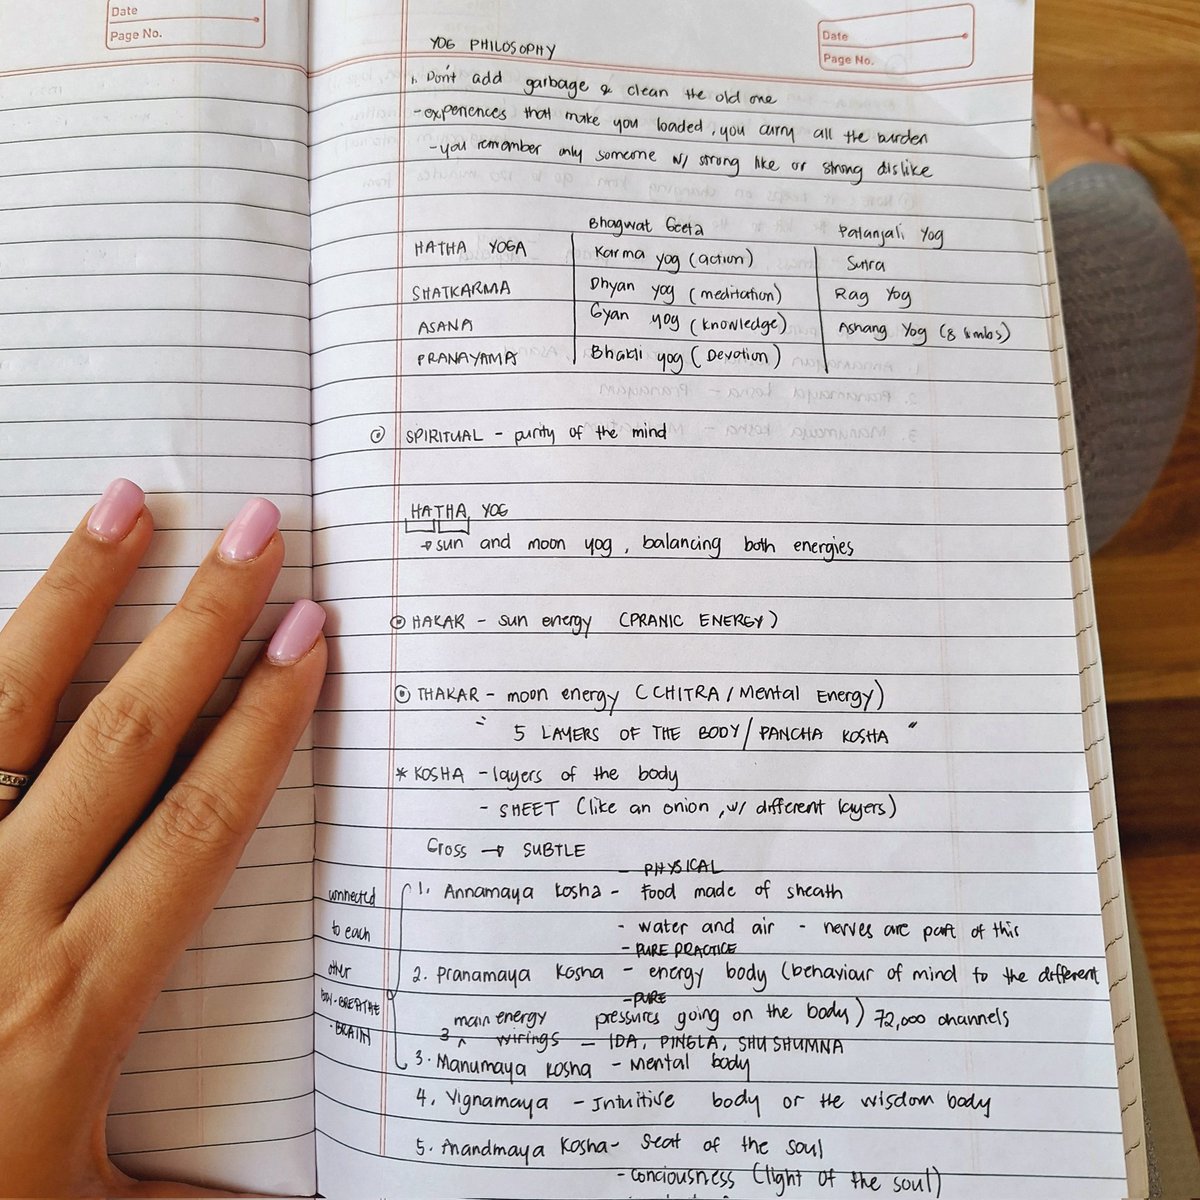 Date
Page No.
Date
Page No.
YOG PHILOSOPHY
1. Don't add garbage & clean the old one
- experiences that make you loaded, you carry all the burden
- you remember only someone w/ strong like or strong dislike
Bhagwat Geeta Patanjali Yog
HATHA YOGA Karma yog (action) Sutra
SHATKARMA Dhyan yog (meditation) Rag Yog
ASANA Gyan yog (knowledge) Ashang Yog (8 limbs)
PRANAYAMA Bhakti yog (Devotion)
SPIRITUAL - purity of the mind
HATHA YOG
→ sun and moon yog, balancing both energies
HAKAR - sun energy (PRANIC ENERGY)
THAKAR - moon energy (CHITRA/Mental Energy)
" 5 LAYERS OF THE BODY/PANCHA KOSHA "
* KOSHA - layers of the body
- SHEET (like an onion, w/ different layers)
Gross → SUBTLE
- PHYSICAL
1. Annamaya kosha - Food made of sheath
- water and air - nerves are part of this
- PURE PRACTICE
2. Pranamaya kosha - energy body (behaviour of mind to the different
- PURE
pressures going on the body) 72,000 channels
3 main energy wirings - IDA, PINGLA, SHUSHUMNA
3. Manumaya kosha - mental body
4. Vignamaya - Intuitive body or the wisdom body
5. Anandmaya kosha - Seat of the soul
- conciousness (light of the soul)
connected
to each
other
BODY-BREATHE
- BRAIN